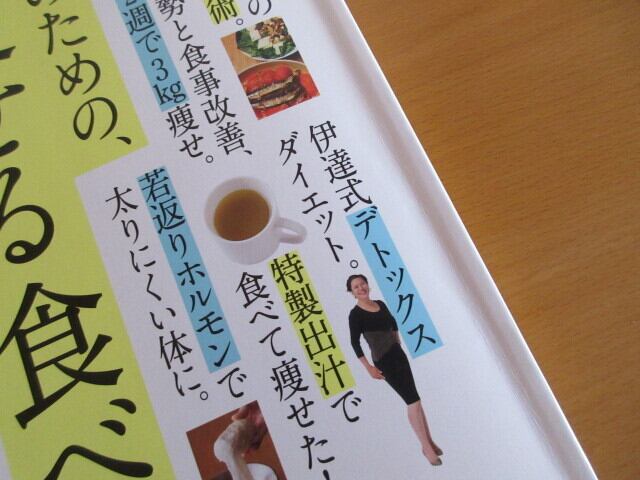 の
術。
勢と食事改善、
週で3kg痩せ。
伊達式デトックス
ダイエット。
特製出汁で
食べて痩せた!
若返りホルモンで
太りにくい体に。
のための、
せる食べ